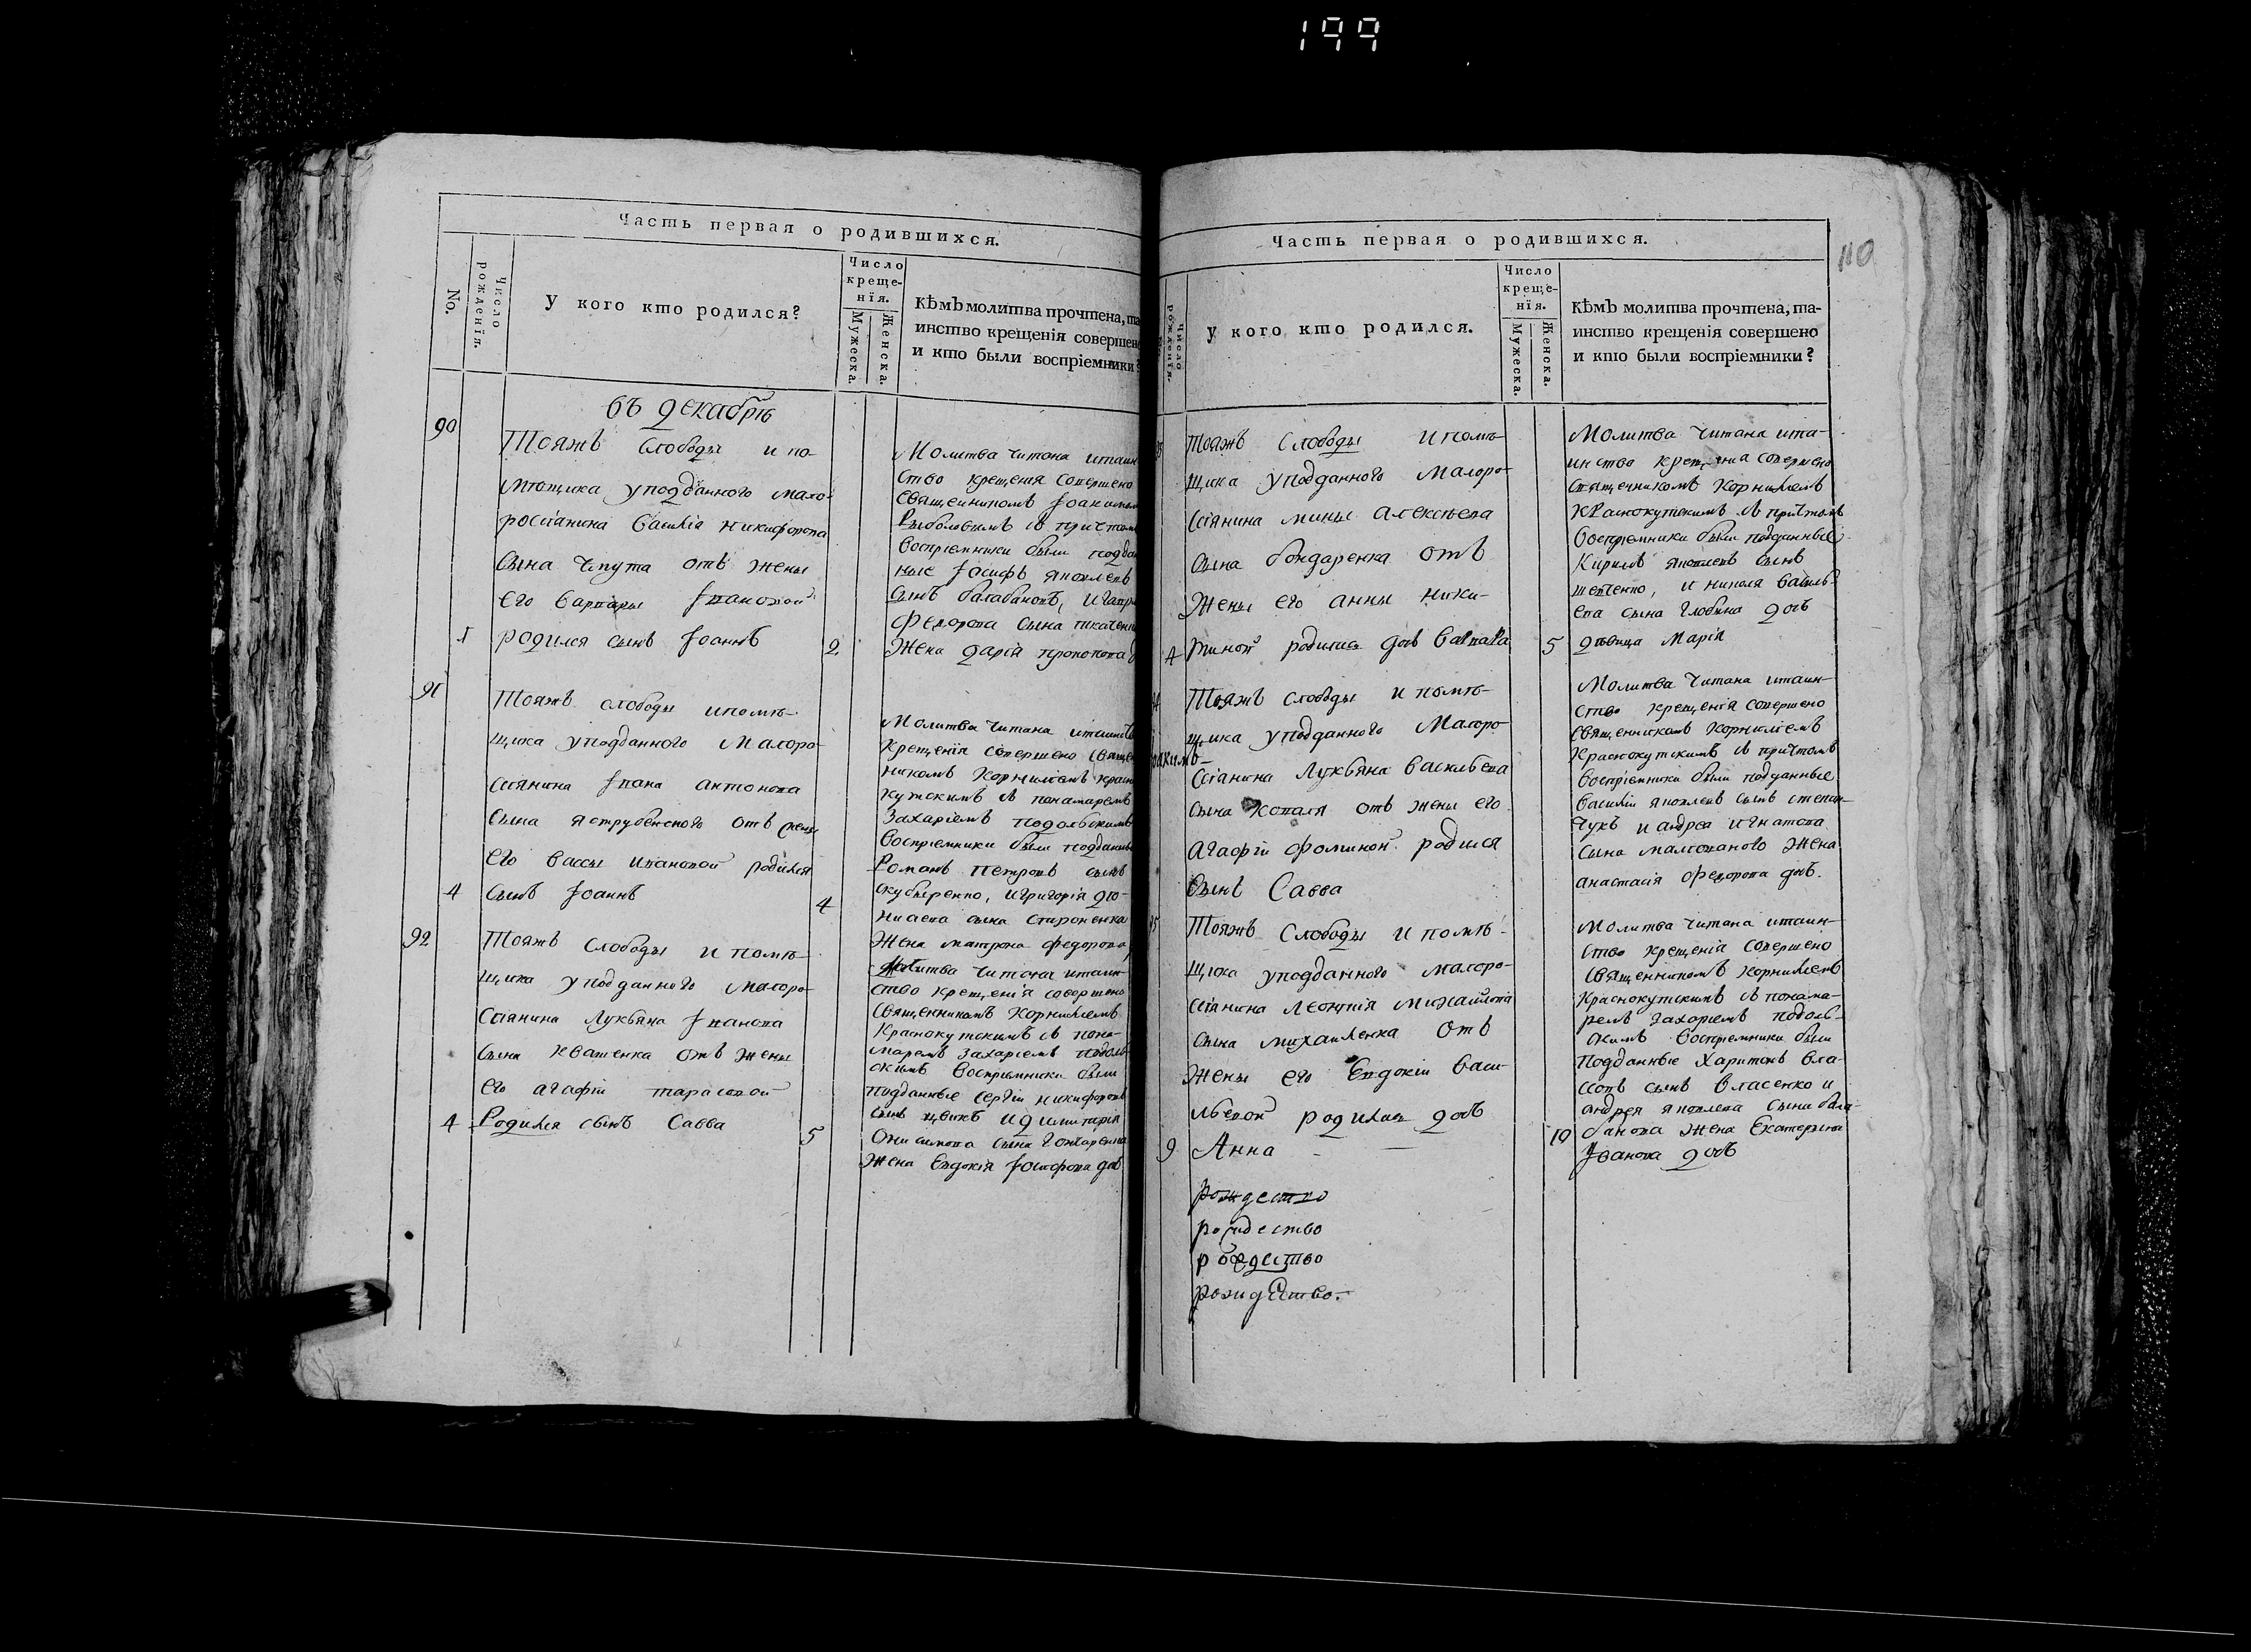 199
Часть первая о родившихся.
No.
Число рожденїя.
У кого кто родился?
Число креще-
нїя.
Мужеска.
Женска.
Кѣмъ молитва прочтена, та
инство крещенія совершено
и кто были воспріемники?
въ декабрѣ
90
Тояжъ слободы и по-
мѣщика уподданного мало-
россіанина Василіа никифорова
сына отъ жены
его варвары Iвановой
1 родился сынъ Iоаннъ 2
Молитва читана итаин
ство крещенія совершено
священникомъ Iоакимом
съ причтомъ
воспріемники были подда
ные Iосифъ яковлевъ
сынъ балабановъ, и
федорова сына ткаченк
жена дарія прокопова
91
Тояжъ слободы ипомѣ-
щика уподданного малоро-
сіянина Iвана антонова
сына яструбенского отъ жены
его вассы ивановой родился
4 сынъ Iоаннъ 4
Молитва читана итаинств
крещеніа совершено свящe
никомъ Корниліемъ красн
кутскимъ съ понамаремъ
Захаріемъ подольскимъ
воспріемники были подданны
Романъ петровъ сынъ
игригорія дїо-
нисіева сына стороженка
жена матрона федорова
92
Тояжъ слободы и помѣ-
щика уподданного малоро-
сіянина лукьяна Iванова
сына квашенка отъ жены
его агафіи тарасовой
4 Родился сынъ Савва 5
Молитва читана итаин-
ство крещенія совершено
священникомъ Корниліемъ
Краснокутскимъ съ пона-
маремъ захаріемъ подоль
скимъ воспріемники были
подданные сергіи никифоровъ
сынъ цвикъ идимитрія
онисимова сына гончаренка
жена Евдокія Iосифова доч
Часть первая о родившихся.
110
Число рожденїя.
У кого кто родился.
Число
креще-
нїя.
Мужеска.
Женска.
Кѣмъ молитва прочтена, та-
инство крещенія совершено
и кто были воспріемники?
Тояжъ слободы ипомѣ-
щика уподданного малоро-
сіянина мины алексѣева
сына бондаренка отъ
жены его анны ники-
4 родилась дочь варвара 5
Молитва читана ита-
инство крещенія совершено
священникомъ Корниліемъ
краснокутскимъ съ причтомъ
воспріемники были подданные
Кирилъ яковлевъ сынъ
и никола василь-
ева сына глобина дочь
дѣвица Марія
Тояжъ слободы и помѣ-
щика уподданного малоро-
сіянина лукьяна васильева
сына коваля отъ жены его
агафіи фоминой родился
сынъ Савва
Молитва читана итаин-
ство крещенія совершено
священникомъ корниліемъ
краснокутскимъ съ причтомъ
воспріемники были подданные
василій яковлевъ сынъ степан-
чукъ и андрea игнатова
сына жена
анастасія федорова дочь.
Тояжъ слободы и помѣ-
щика уподданного малоро-
сіянина леонтія михайлова
сына михайленка отъ
жены его Евдокіи васи-
льевой родилась дочь
9 Анна 10
Молитва читана итаин-
ство крещеніа совершено
священникомъ корниліемъ
краснокутскимъ съ понама-
ремъ захаріемъ подоль-
скимъ воспріемники были
подданные харитонъ вла-
совъ сынъ власенко и
андрея яковлева сына бала-
банова жена Екатерина
Iванова дочь
рождество
рождество
рождество
рождество.